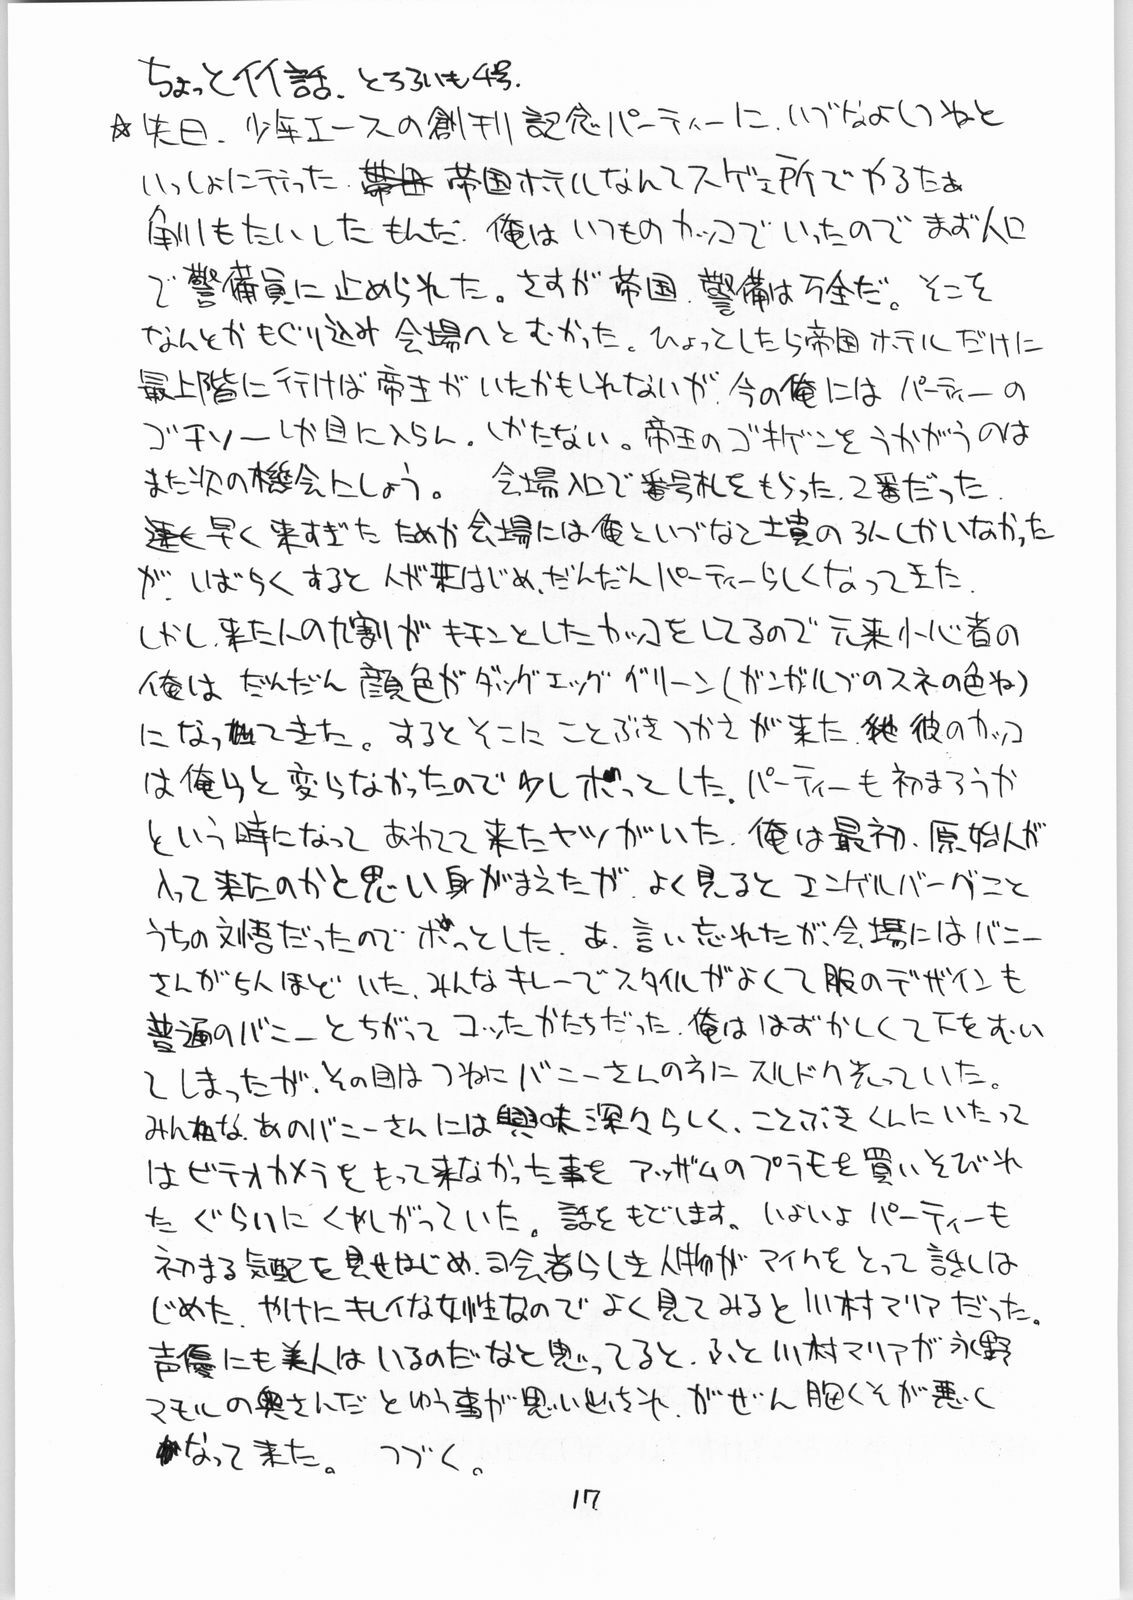 ちょっとイイ話。とろろいも4号.
☆先日、少年エースの創刊記念パーティーに、いづなよしつねと
いっしょに行った. 帝国ホテルなんてスゲェ所でやるたぁ
角川もたいしたもんだ. 俺はいつものカッコでいったのでまず入口
で警備員に止められた。さすが帝国、警備は万全だ。そこを
なんとかもぐり込み 会場へとむかった。ひょっとしたら帝国ホテルだけに
最上階に行けば帝王がいたかもしれないが、今の俺にはパーティーの
ゴチソーしか目に入らん。しかたない。帝王のゴキゲンをうかがうのは
また次の機会にしょう。 会場入口で番号札をもらった、2番だった.
早く来すぎたためか会場には俺といづなと士貴の3人しかいなかった
が、しばらくすると人が来はじめ、だんだんパーティーらしくなってきた.
しかし、来た人の九割がキチンとしたカッコをしてるので元来小心者の
俺はだんだん顔色がダックエッググリーン(ガンガルブのスネの色ね)
になってきた。するとそこにことぶきつかさが来た. 彼のカッコ
は俺らと変らなかったので少しホッとした. パーティーも初まろうか
という時になってあわてて来たヤツがいた. 俺は最初、原始人が
入って来たのかと思い身がまえたが、よく見るとエンゲルバーグこと
うちの文悟だったのでホッとした. あ、言い忘れたが、会場にはバニー
さんが5人ほどいた、みんなキレーでスタイルがよくて服のデザインも
普通のバニーとちがってコッたかたちだった. 俺ははずかしくて下をむい
てしまったが、その目はつねにバニーさんの方にスルドク光っていた。
みんな、あのバニーさんには興味深々らしく、ことぶきくんにいたって
はビデオカメラをもって来なかった事をアッザムのプラモを買いそびれ
たぐらいにくやしがっていた。話をもどします。いよいよパーティーも
初まる気配を見せはじめ、司会者らしき人物がマイクをとって話しは
じめた. やけにキレイな女性なのでよく見てみると川村マリアだった。
声優にも美人はいるのだなと思ってると、ふと川村マリアが永野
マモルの奥さんだとゆう事が思い出され、がぜん胸くそが悪く
なって来た。 つづく。
17